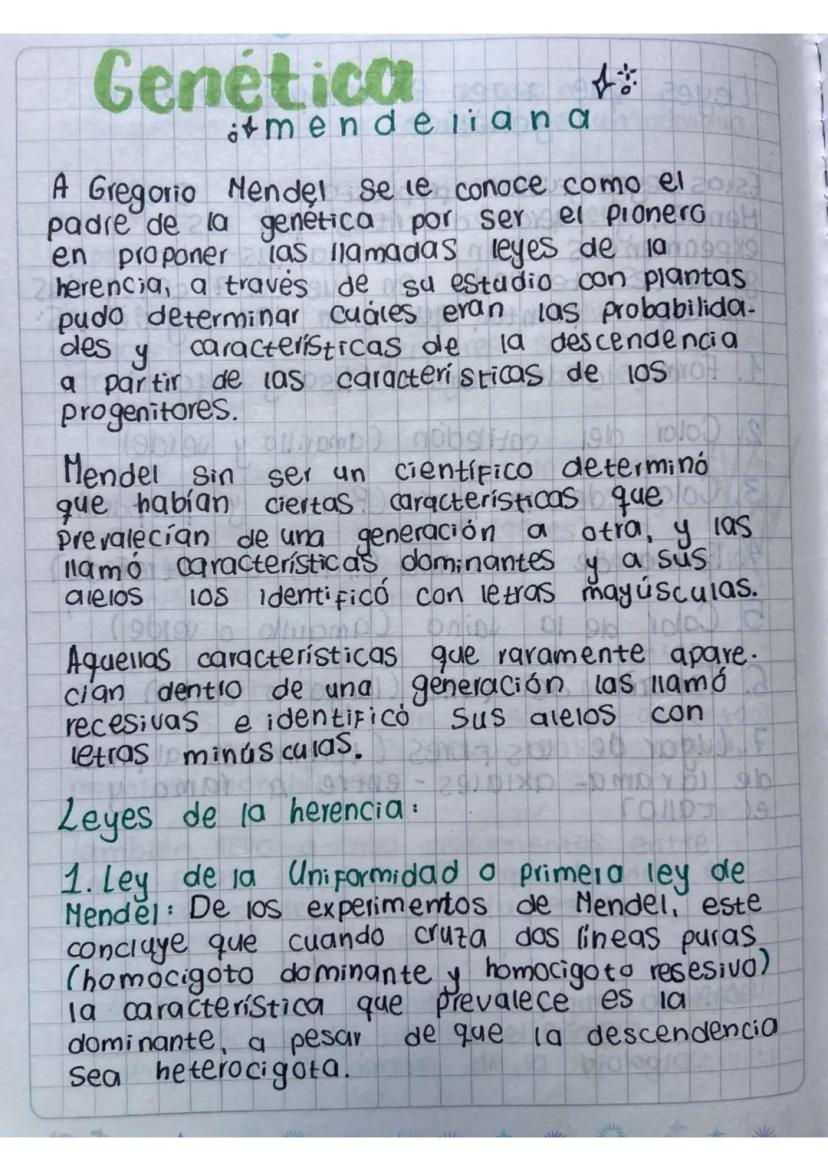 Genética
mendeliana
A Gregorio Mendel se le conoce como el
padre de la genética por ser el pionero
en proponer las llamadas leyes de la
herencia, a través de su estudio con plantas
pudo determinar cuáles eran las probabilida-
des y características de la descendencia
a partir de las características de los
progenitores.
Mendel sin ser un científico determinó
que habían ciertas características que
prevalecían de una generación a otra, y las
llamó características dominantes y a sus
alelos los identificó con letras mayúsculas.
Aquellas características que raramente apare-
cían dentro de una generación las llamó
recesivas e identificó sus alelos con
letras minúsculas.
Leyes de la herencia:
1. Ley de la Uniformidad o primera ley de
Mendel: De los experimentos de Mendel, este
concluye que cuando cruza dos líneas puras
(homocigoto dominante y homocigoto resesivo)
la característica que prevalece es la
dominante, a pesar de que la descendencia
sea heterocigota.